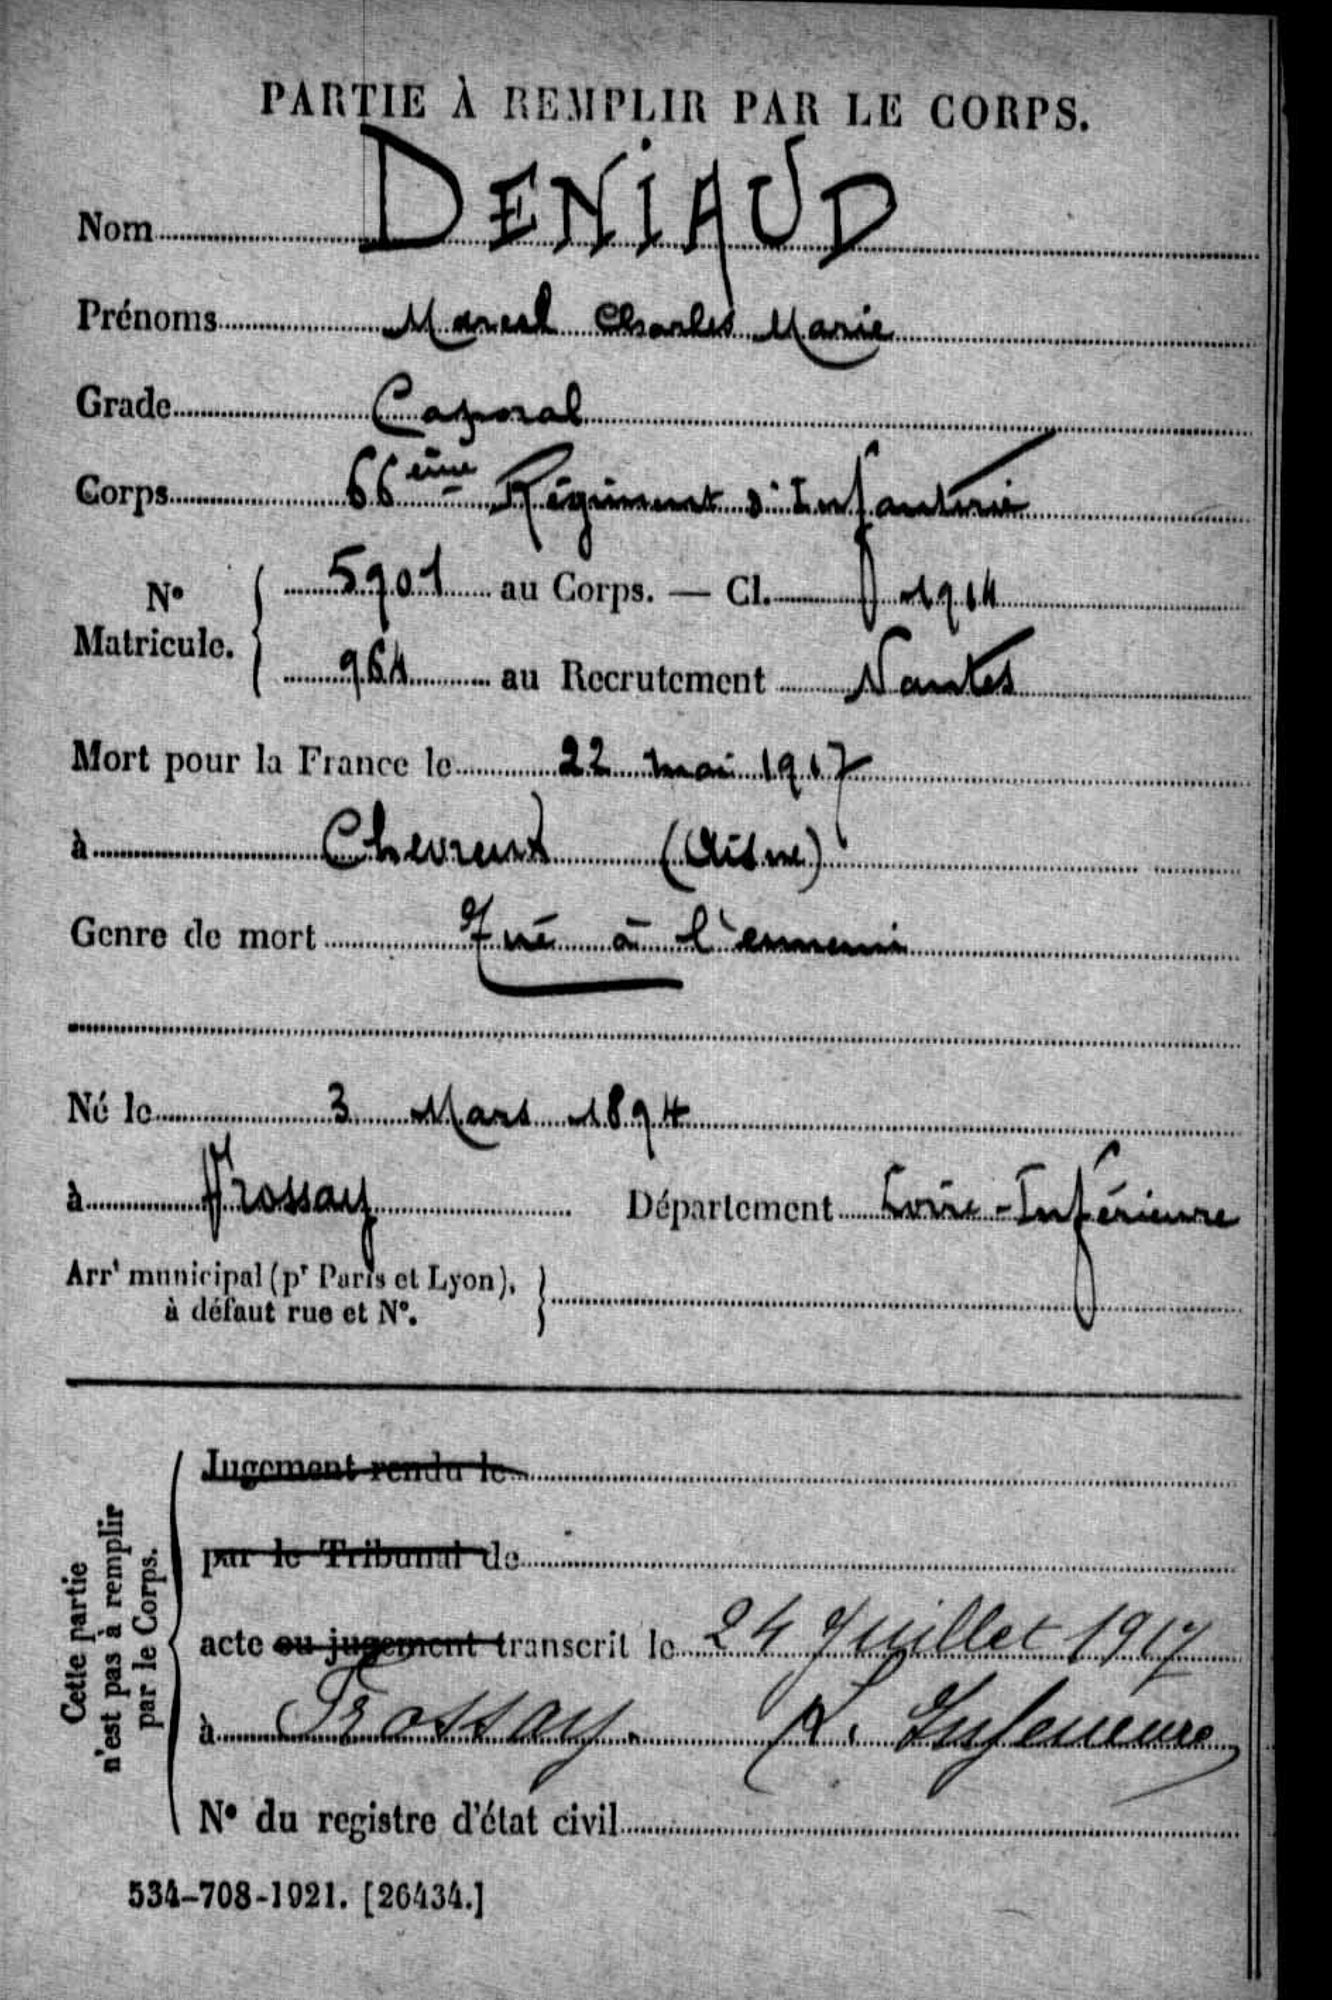 PARTIE À REMPLIR PAR LE CORPS.
Nom DENIAUD
Prénoms Marcel Charles Marie
Grade Caporal
Corps 66ème Régiment d'Infanterie
N° Matricule. 5901 au Corps. — Cl. 1914
964 au Recrutement Nantes
Mort pour la France le 22 mai 1917
à Chevreux (Aisne)
Genre de mort Tué à l'ennemi
Né le 3 Mars 1894
à Frossay Département Loire-Inférieure
Arrt municipal (pr Paris et Lyon),
à défaut rue et N°.
Cette partie
n'est pas à remplir
par le Corps.
Jugement rendu le
par le Tribunal de
acte ou jugement transcrit le 24 Juillet 1917
à Frossay. L. Inferieure
N° du registre d'état civil
534-708-1921. [26434.]